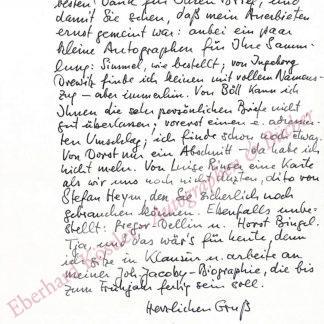 besten Dank für Ihren Brief, und
damit Sie sehen, daß mein Anerbieten
ernst gemeint war: anbei ein paar
kleine Autographen für Ihre Samm-
lung: Simmel, wie bestellt; von Ingeborg
Drewitz finde ich keinen mit vollen Namens-
zug – aber immerhin. Von Böll kann ich
Ihnen die sehr persönlichen Briefe nicht
gut überlassen; vorerst einen v. adressier-
ten Umschlag; ich finde schon noch etwas.
Von Dorst nur ein Abschnitt – da habe ich
nicht mehr. Von Luise Rinser eine Karte
als wir uns noch nicht duzten, dito von
Stefan Heym, den Sie sicherlich noch
gebrauchen können. Ebenfalls unbe-
stellt: Gregor-Dellin u. Horst Bingel.
Tja, und das wär's für heute, denn
ich sitze in Klausur u. arbeite an
meiner Joh. Jacoby-Biographie, die bis
zum Frühjahr fertig sein soll.
Herzlichen Gruß